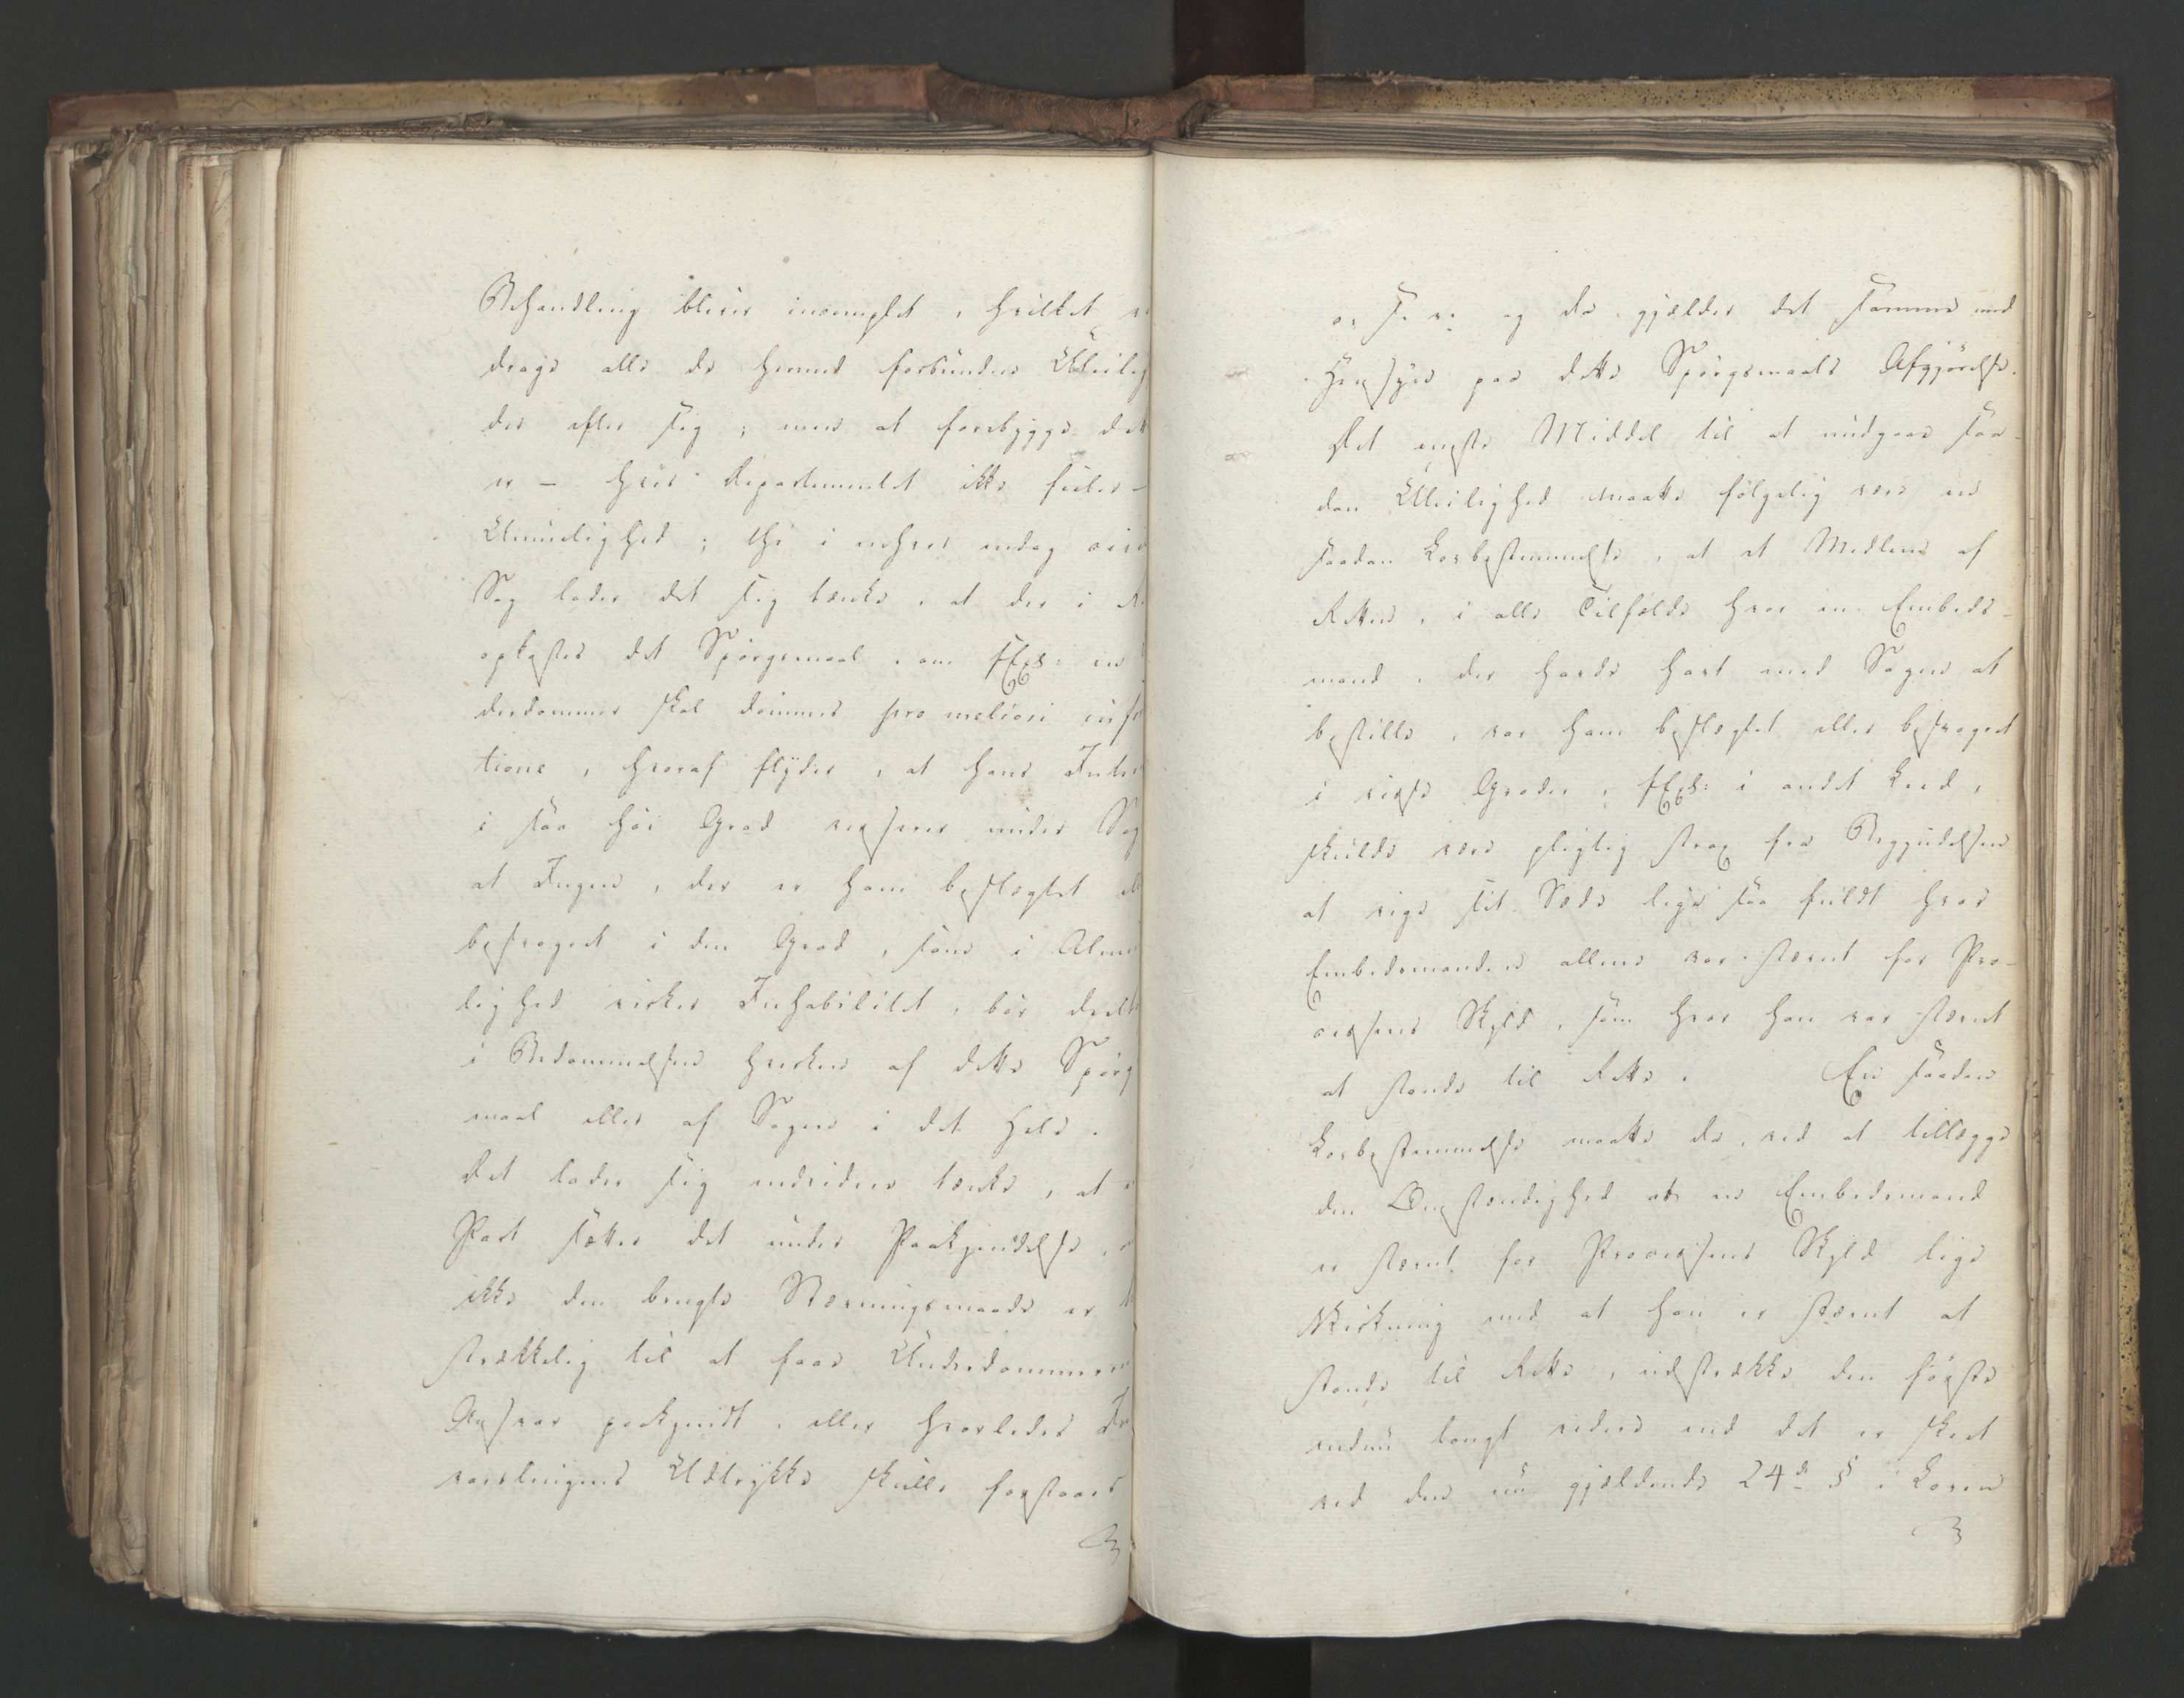 Behandling bliver incomplet, hvilket
drage alle de hermed forbundne Uleilig
der efter sig; men at forebygge det
er – hvis Departementet ikke feiler –
Umuelighed; thi i enhver endog
Sag lader det sig tænke, at der i
opkastes det Spørgsmaal, om fEx: en
derdommer skal dømmes pro meliori info
tione, hvoraf flyder, at hans
i saa høi Grad verserer under Sag
at Ingen, der er ham beslægtet
besvogret i den Grad, som i Almi
lighed virker Inhabilitet, bør deelt
i Bedømmelsen hverken af dette Spørg
maal eller af Sagen i det Hele.
Det lader sig endvidere tænke, at
Part sætter det under Paakjendelse,
ikke den brugte Stævningsmaade er
strækkelig til at faae Underdommeren
Ansvar paakjendt, eller hvorledes
varslingens Udtrykke skulle forstaaes
o. s. v: og da gjælder det samme med
Hensyn paa dette Spørgsmaals Afgjørelse.
Det eneste Middel til at undgaae saa-
dan Uleilighed maatte følgelig være en
saadan Lovbestemmelse, at et Medlem af
Retten, i alle Tilfælde hvor en Embeds-
mand, der havde havt med Sagen at
bestille, var ham beslægtet eller besvogret
i visse Grader, fEx: i andet Leed,
skulde være pligtig strax fra Begyndelsen
at vige sit Sæde ligesaa fuldt hvor
Embedsmanden allene var stævnt for Pro-
cessens Skyld, som hvor han var stævnt
at stande til Rette. En saadan
Lovbestemmelse maatte da, ved at tillægge
den Omstændighed at en Embedsmand
er stævnt for Processens Skyld lige
Virkning med at han er stævnt at
stande til Rette, udstrække den første
endnu langt videre end det er skeet
ved den nu gjældende 24de § i Loven